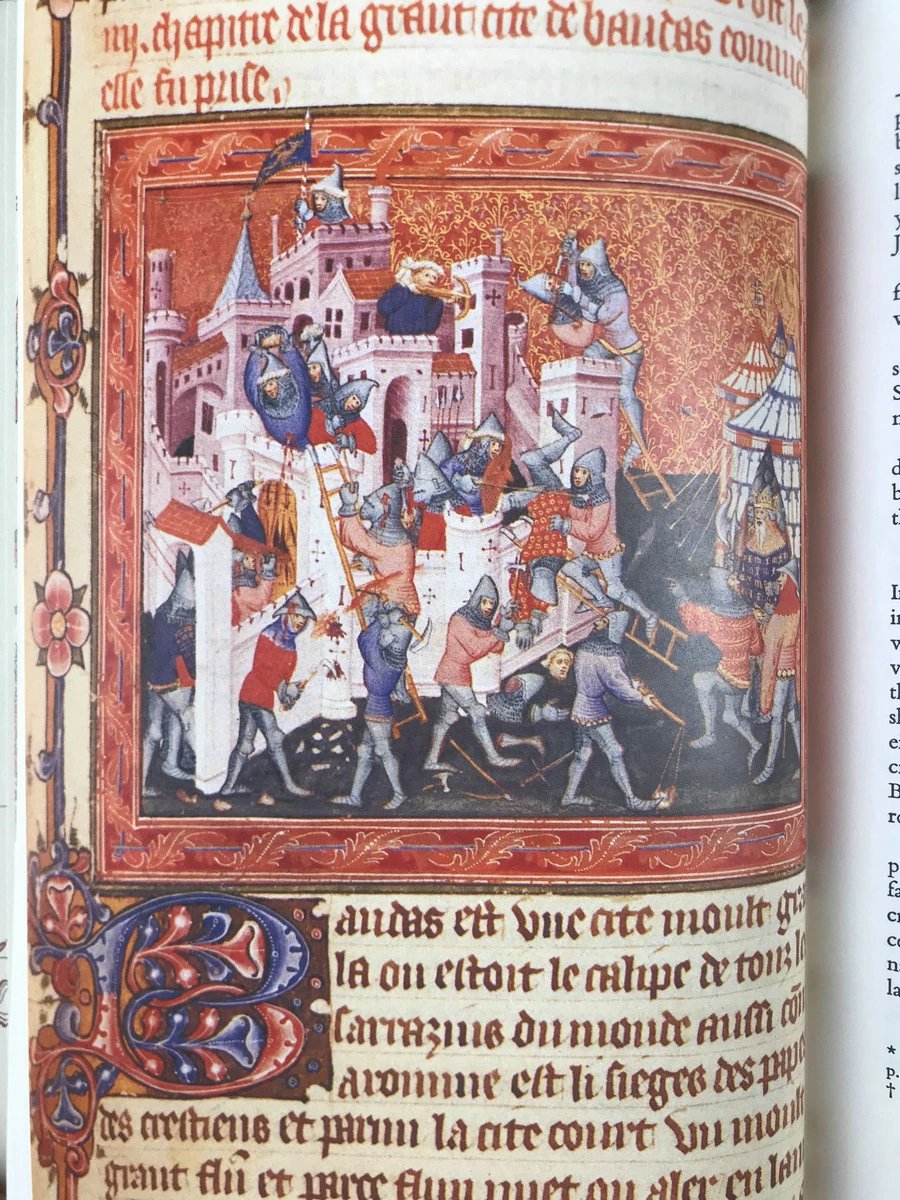 iiij. chapitre de la grant cite de baudas commen
elle fu prise.
Baudas est une cite moult gra
la ou estoit le calipe de touz le
sarrazins du monde aussi cõm
a romme est li sieges des pape
des crestiens et parmi la cite court un moult
grant flũ et parce flun puet on aler en lan